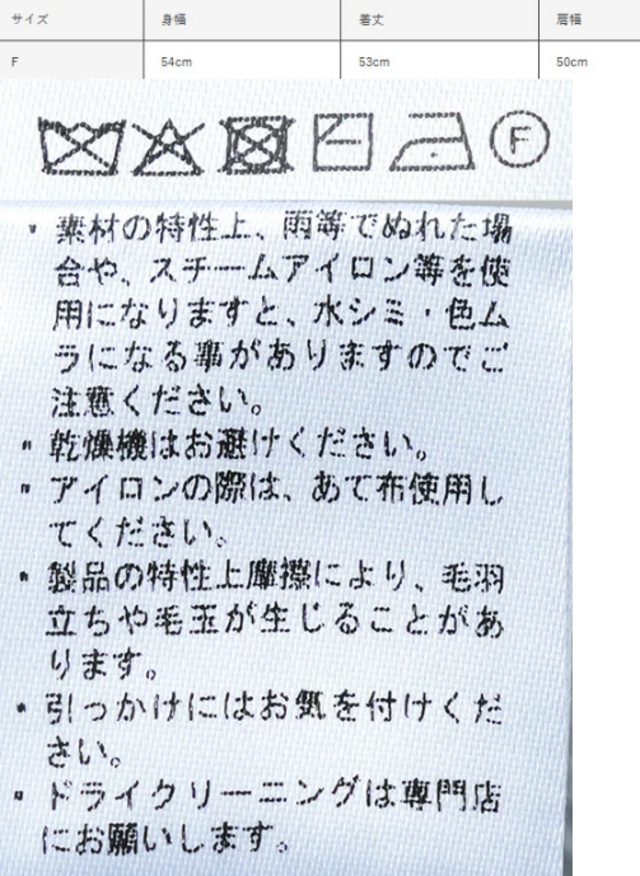 サイズ 身幅 着丈 肩幅
F 54cm 53cm 50cm
F
・素材の特性上、雨等でぬれた場
合や、スチームアイロン等を使
用になりますと、水シミ・色ム
ラになる事がありますのでご
注意ください。
・乾燥機はお避けください。
・アイロンの際は、あて布使用し
てください。
・製品の特性上摩擦により、毛羽
立ちや毛玉が生じることがあ
ります。
・引っかけにはお気を付けくだ
さい。
・ドライクリーニングは専門店
にお願いします。